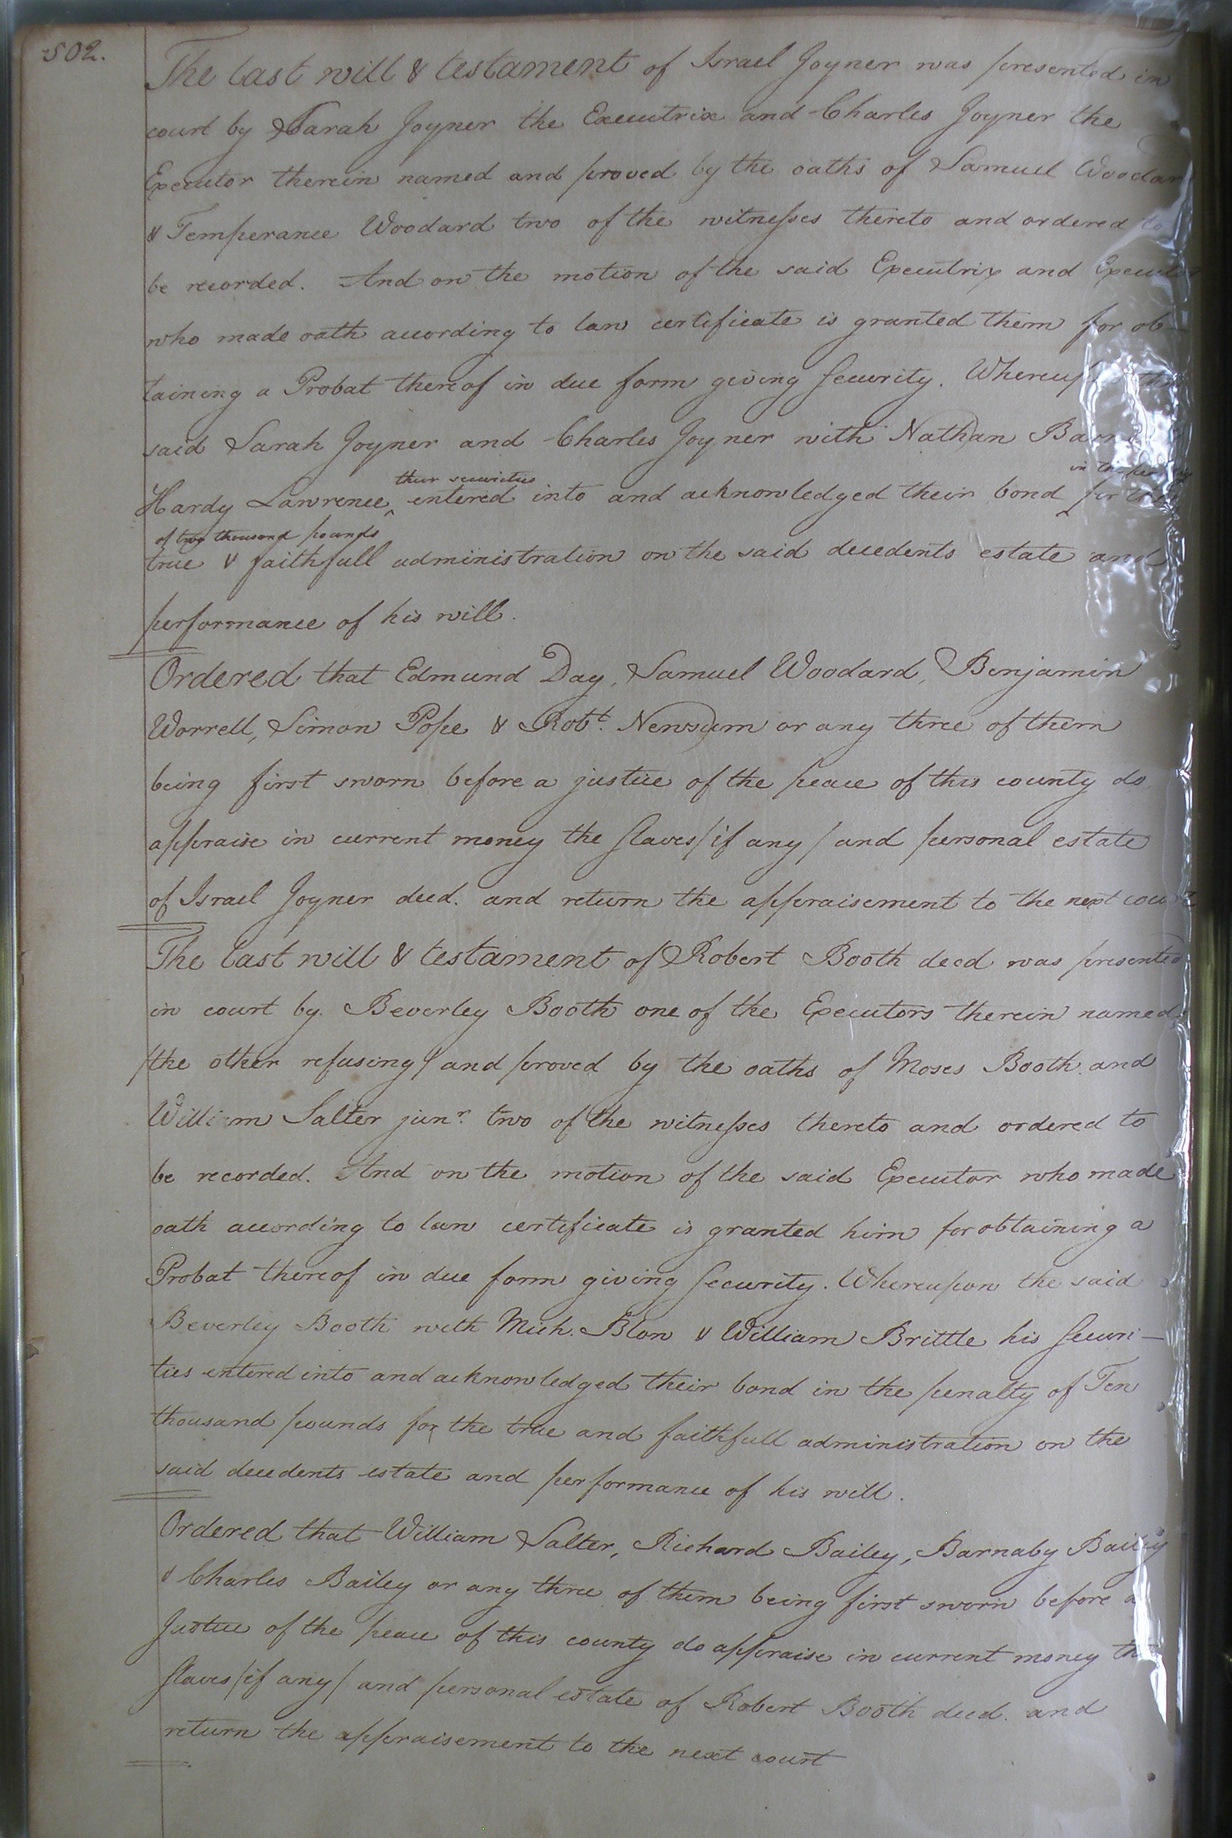 502.
The last will & testament of Israel Joyner was presented in
court by Sarah Joyner the Executrix and Charles Joyner the
Executor therein named and proved by the oaths of Samuel Woodard
& Temperance Woodard two of the witnesses thereto and ordered to
be recorded. And on the motion of the said Executrix and Executor
who made oath according to law certificate is granted them for ob
taining a Probat thereof in due form giving security. Whereupon the
said Sarah Joyner and Charles Joyner with Nathan
their securities in the penalty
Hardy Lawrence, entered into and acknowledged their bond for the
of two thousand pounds
true & faithfull administration on the said decedents estate and
performance of his will.
Ordered that Edmund Day, Samuel Woodard, Benjamin
Worrell, Simon Pope & Robt. Newsum or any three of them
being first sworn before a justice of the peace of this county do
appraise in current money the slaves /if any/ and personal estate
of Israel Joyner decd. and return the appraisement to the next court
The last will & testament of Robert Booth decd was presented
in court by Beverley Booth one of the Executors therein named
/the other refusing/ and proved by the oaths of Moses Booth and
William Salter junr. two of the witnesses thereto and ordered to
be recorded. And on the motion of the said Executor who made
oath according to law certificate is granted him for obtaining a
Probat thereof in due form giving security. Whereupon the said
Beverley Booth with Mich. Blow & William Brittle his securi-
ties entered into and acknowledged their bond in the penalty of Ten
thousand pounds for the true and faithfull administration on the
said decedents estate and performance of his will.
Ordered that William Salter, Richard Bailey, Barnaby Bailey
& Charles Bailey or any three of them being first sworn before a
Justice of the peace of this county do appraise in current money the
slaves /if any/ and personal estate of Robert Booth decd. and
return the appraisement to the next court